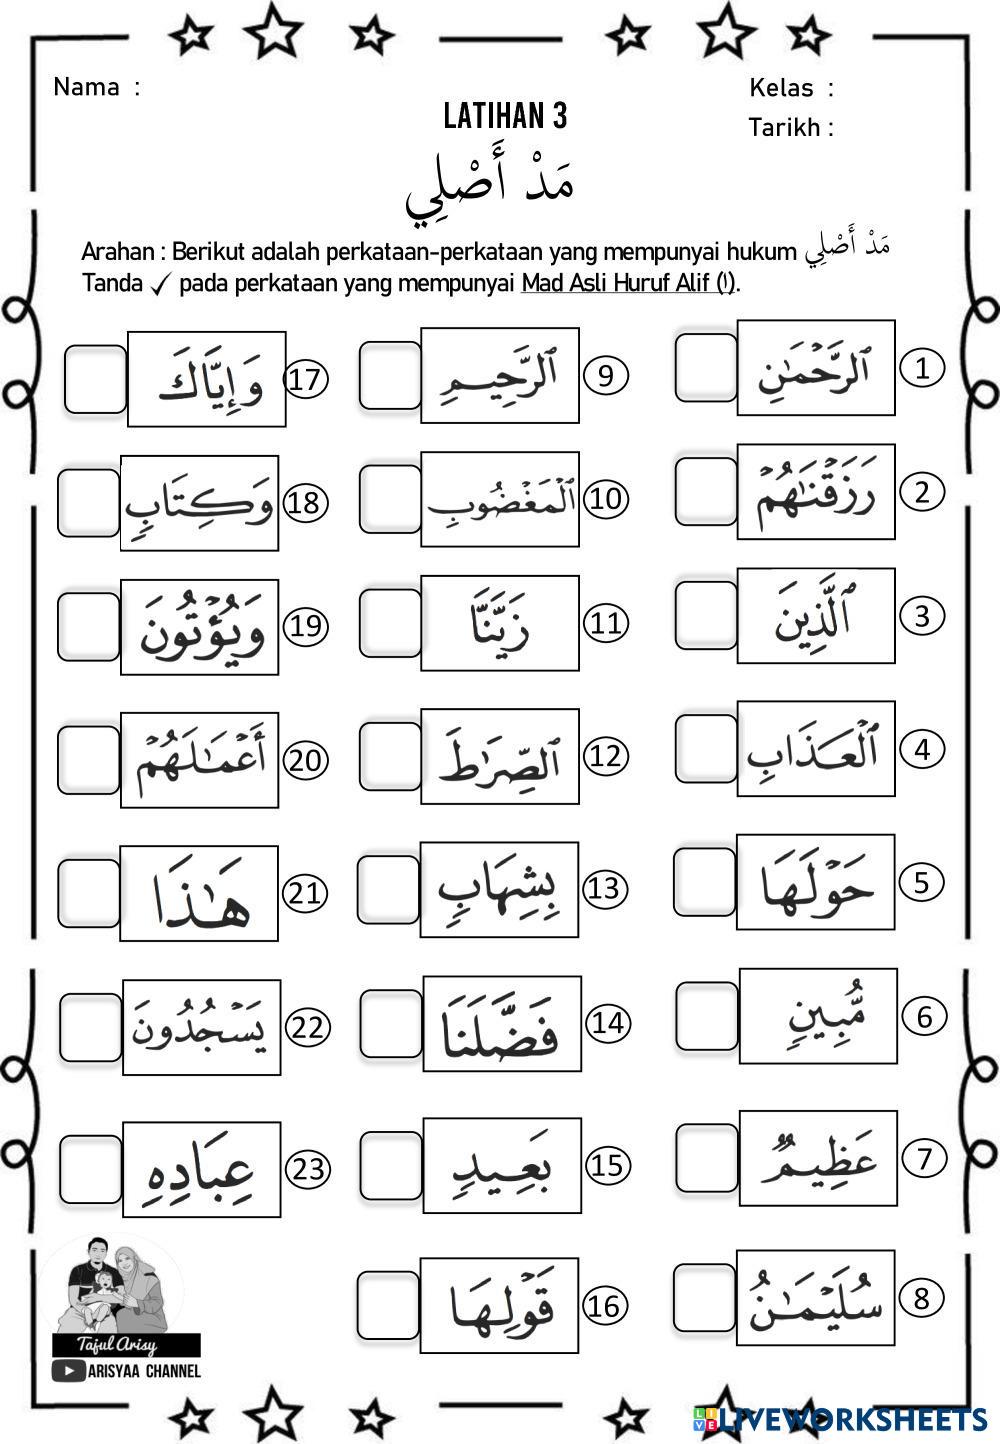 Nama :
Kelas :
LATIHAN 3
Tarikh :
مَدْ أَصْلِي
Arahan : Berikut adalah perkataan-perkataan yang mempunyai hukum مَدْ أَصْلِي
Tanda ✓ pada perkataan yang mempunyai Mad Asli Huruf Alif (ا).
1 ٱلرَّحْمَـٰنِ
2 رَزَقْنَـٰهُمْ
3 ٱلَّذِينَ
4 ٱلْعَذَابِ
5 حَوْلَهَا
6 مُّبِينٍ
7 عَظِيمٌ
8 سُلَيْمَـٰنُ
9 ٱلرَّحِيمِ
10 ٱلْمَغْضُوبِ
11 زَيَّنَّا
12 ٱلصِّرَٰطَ
13 بِشِهَابٍ
14 فَضَّلَنَا
15 بَعِيدٍ
16 قَوْلِهَا
17 وَإِيَّاكَ
18 وَكِتَابٍ
19 وَيُؤْتُونَ
20 أَعْمَـٰلَهُمْ
21 هَـٰذَا
22 يَسْجُدُونَ
23 عِبَادِهِ
Tajul Arisy
ARISYAA CHANNEL
LIVEWORKSHEETS